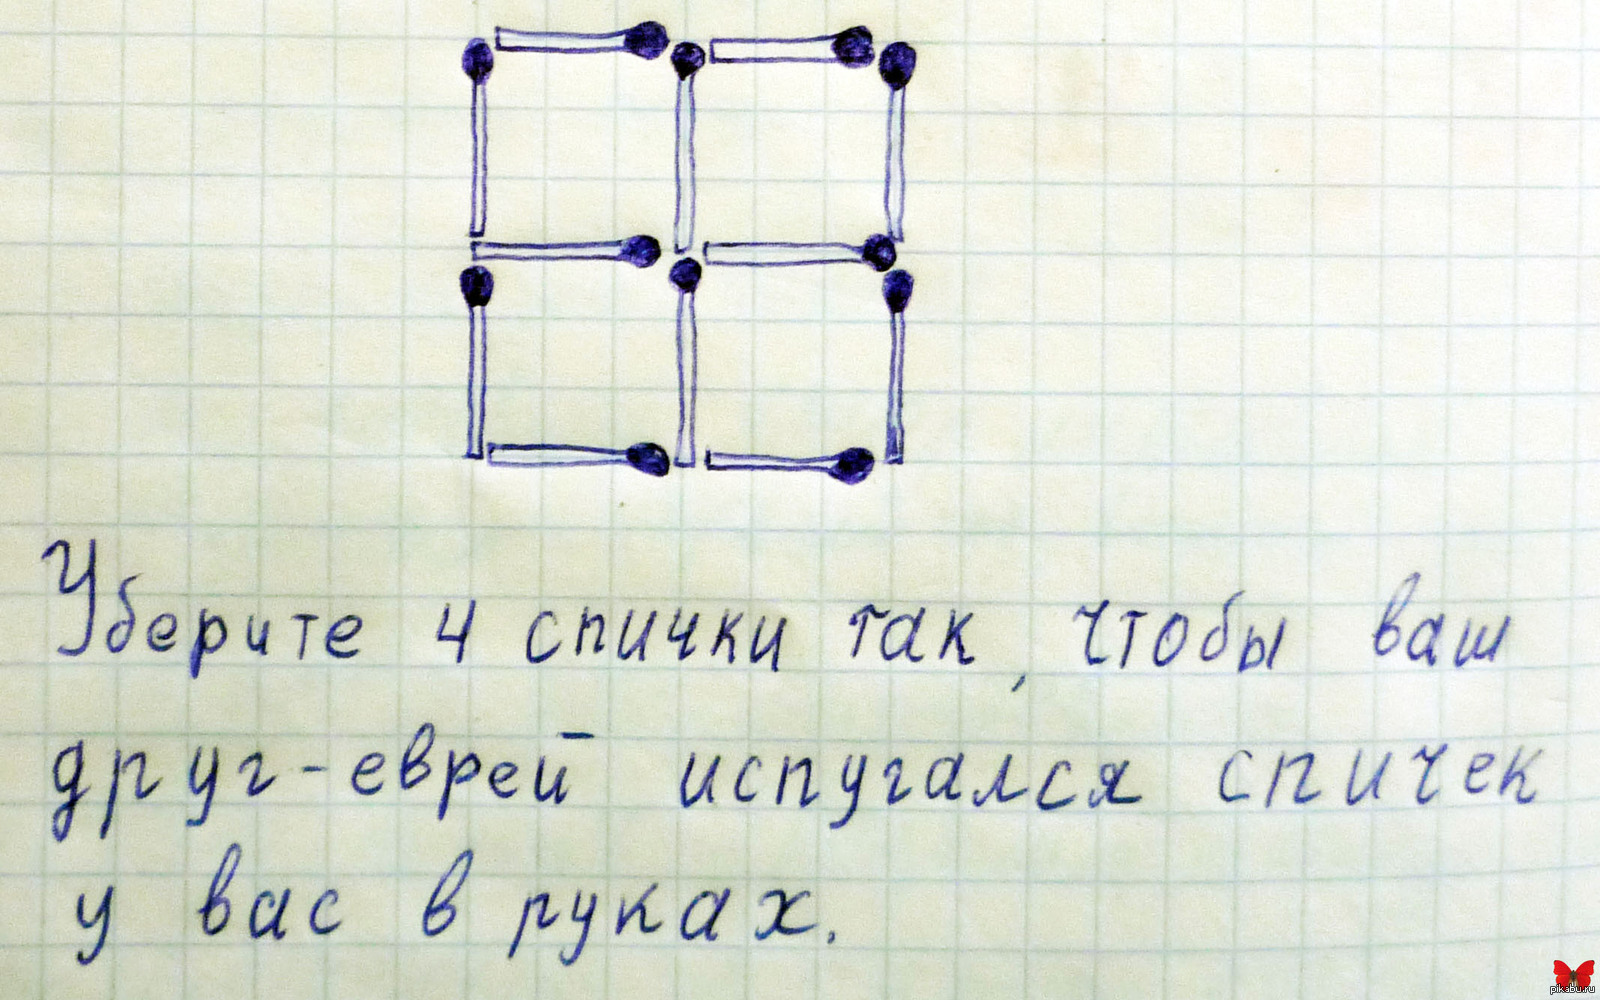 Уберите 4 спички так, чтобы ваш
друг-еврей испугался спичек
у вас в руках.
pikabu.ru